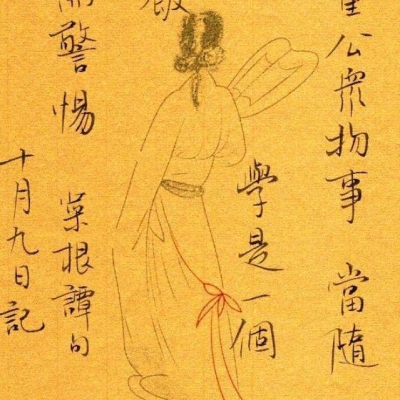 重公衆物事 當隨
學是一個
飯
而警惕 菜根譚句
十月九日記